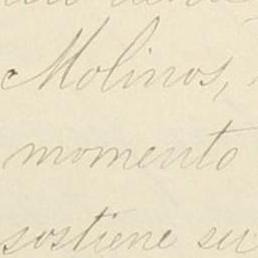 Molinos,
momento
sostiene su